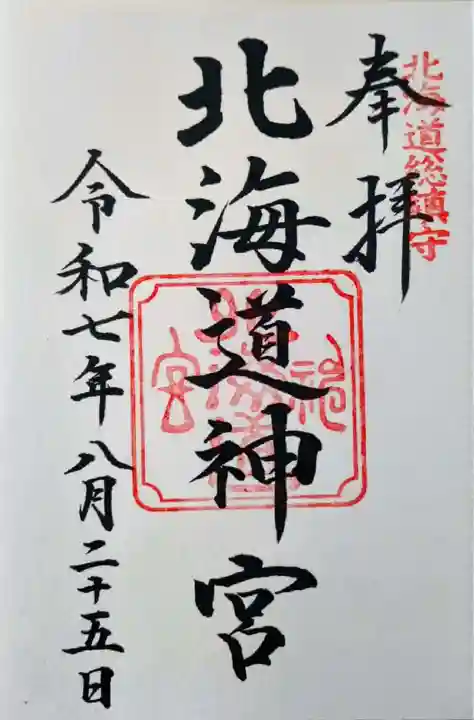 北海道総鎮守
奉拝
北海道神宮
令和七年八月二十五日